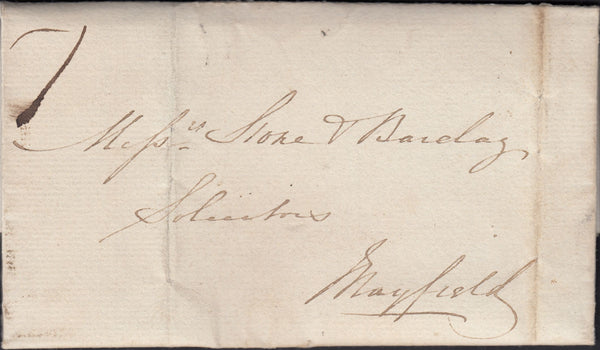 7
Messrs Stone & Barclay
Solicitors
Mayfield